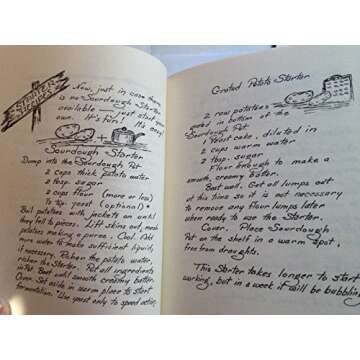 STARTER RECIPES
Now, just in case there
is no Sourdough Starter
available — just start your
own. It's fun! It's easy!
Sourdough Starter
Dump into the Sourdough Pot
2 cups thick potato water
2 tbsp. sugar
2 cups flour (more or less)
½ tsp. yeast (optional) *
Boil potatoes with jackets on until
they fall to pieces. Lift skins out, mash
potatoes making a puree. Cool. Add
more water to make sufficient liquid,
if necessary. Richer the potato water,
richer the Starter. Put all ingredients
in Pot. Beat until smooth creamy batter.
Cover. Set aside in warm place to start
fermentation. *Use yeast only to speed action.
Grated Potato Starter
2 raw potatoes
grated in bottom of the
Sourdough Pot.
1 Yeast cake, diluted in
2 cups warm water
2 tbsp. sugar
Flour enough to make a
smooth, creamy batter.
Beat well. Get all lumps out
at this time so it is not necessary
to remove any flour lumps later
when ready to use the Starter.
Cover. Place Sourdough
Pot on the shelf in a warm spot,
free from draughts.
This Starter takes longer to start
working, but in a week it will be bubbling